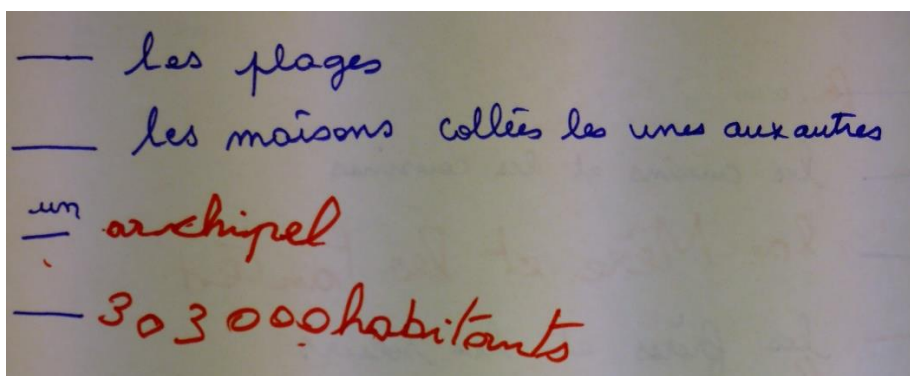 — les plages
— les maisons collées les unes aux autres
— un archipel
— 303 000 habitants